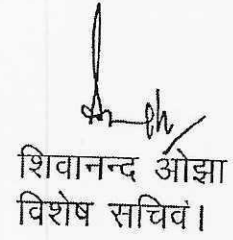 शिवानन्द ओझा
विशेष सचिव।